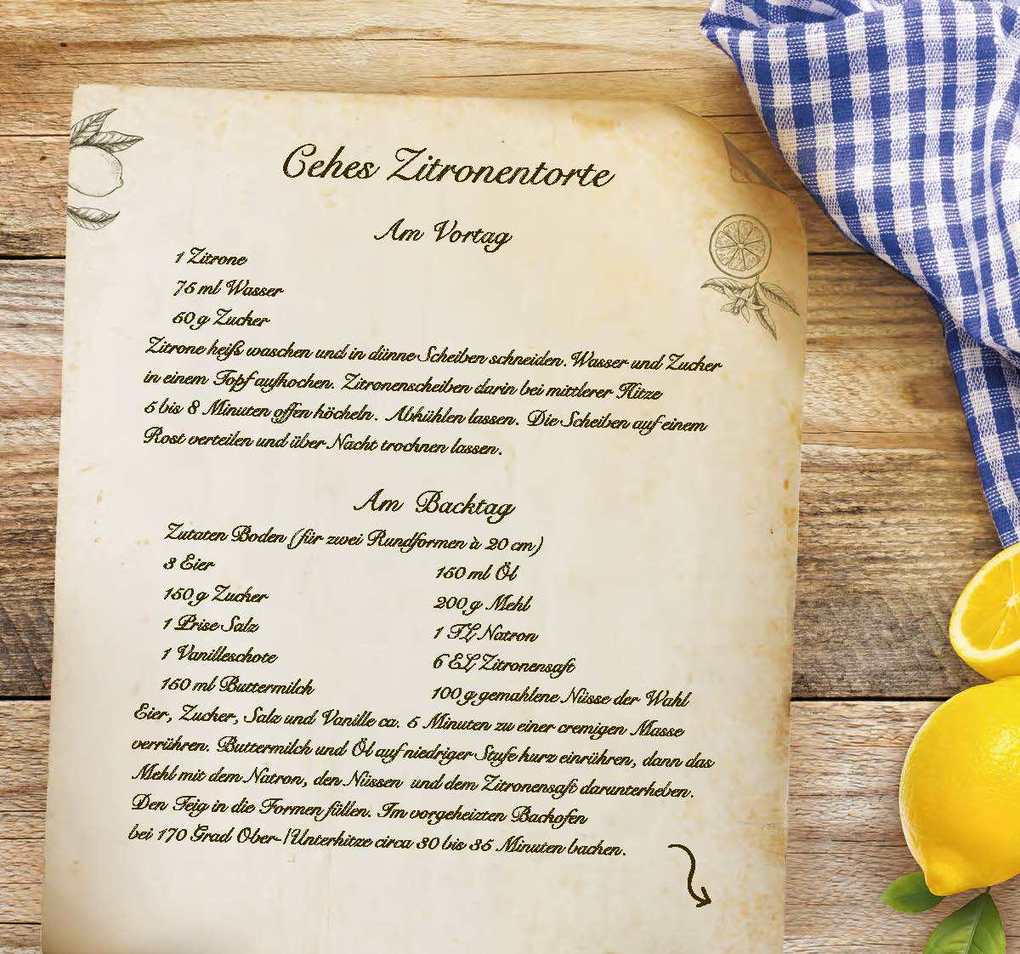 Cehes Zitronentorte
Am Vortag
1 Zitrone
75 ml Wasser
50 g Zucker
Zitrone heiß waschen und in dünne Scheiben schneiden. Wasser und Zucker
in einem Topf aufkochen. Zitronenscheiben darin bei mittlerer Hitze
5 bis 8 Minuten offen köcheln. Abkühlen lassen. Die Scheiben auf einem
Rost verteilen und über Nacht trocknen lassen.
Am Backtag
Zutaten Boden (für zwei Rundformen à 20 cm)
3 Eier
150 g Zucker
1 Prise Salz
1 Vanilleschote
150 ml Buttermilch
150 ml Öl
200 g Mehl
1 TL Natron
6 EL Zitronensaft
100 g gemahlene Nüsse der Wahl
Eier, Zucker, Salz und Vanille ca. 5 Minuten zu einer cremigen Masse
verrühren. Buttermilch und Öl auf niedriger Stufe kurz einrühren, dann das
Mehl mit dem Natron, den Nüssen und dem Zitronensaft darunterheben.
Den Teig in die Formen füllen. Im vorgeheizten Backofen
bei 170 Grad Ober-/Unterhitze circa 30 bis 35 Minuten backen.